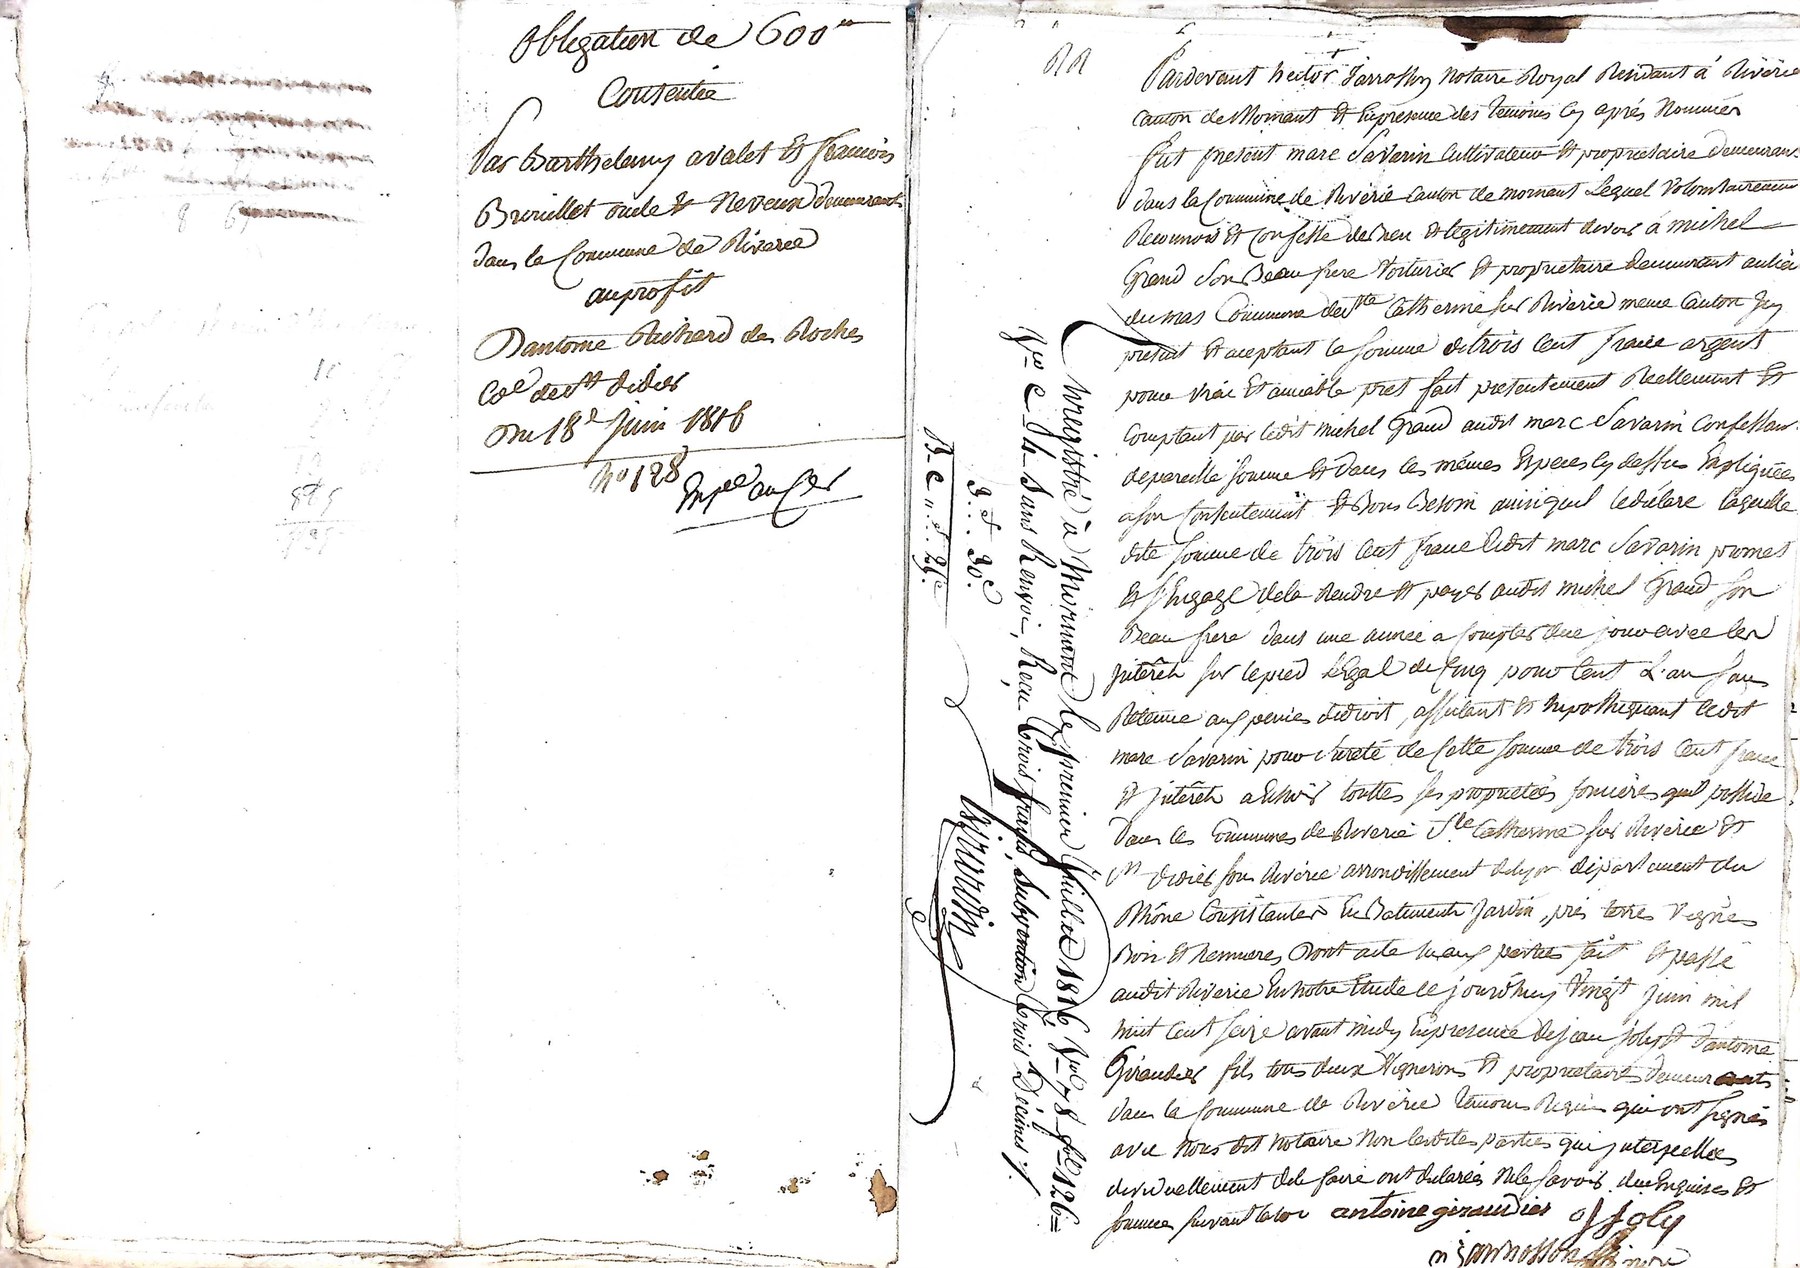 Obligation de 600
Consentie
Par Barthelemy avalet Et francois
Bruiellet oncle & Neveux demeurants
dans la Commune de Riverie
au profit
Dantoine Richard des Roches
Coe de st didier
Du 18e Juin 1816
No 128
RR
Pardevant hector Jarrosson Notaire Royal Residant á Riverie
canton de Mornant Et En presence des temoins Cy après Nommés
fut present marc Savarin Cultivateur Et propriétaire demeurant
dans la Commune de Riverie canton de mornant Lequel Volontairement
Reconnois Et Confesse devoir & légitimement devoir à michel
Grand son Beau frere Voiturier Et propriétaire demeurant au lieu
du mas Commune de Ste Catherine sur Riverie meme Canton Icy
présent Et aceptant la somme de trois Cent franc argent
pour vrai Et amiable prêt fait presentement Reellement Et
Comptant par ledit michel Grand audit marc Savarin Confessant
de pareille somme Et dans les mêmes Especes Cy dessus Expliquées
a son Contentement Et Bons Besoin ainsi quil le délare laquelle
dite somme de trois Cent franc ledit marc Savarin promet
Et s'Engage de la Rendre Et payer audit michel Grand son
Beau frere dans une année a Compter de ce jour avec les
Jntérêts sur le pied Légal de Cinq pour Cent L'an sans
Retenue aux peines de droit, affectant Et hypothéquant ledit
marc Savarin pour Sureté de Cette somme de trois Cent franc
Et jntérêts a Echoir touttes ses propriétées foncières quil possède
dans les Communes de Riverie Ste Catherine sur Riverie Et
St Didier sous Riverie arrondissement de Lyon département du
Rhône Consistantes En Batiments Jardin, prés terres Vignes
Bois Et hermures Dont acte Lu aux parties fait Et passé
audit Riverie En notre Etude ce jourd'huy Vingt Juin mil
huit Cent seize avant midy En presence de jean Joly Et d'antoine
Giraudier fils tous deux Vignerons Et propriétaires demeurants
dans la Commune de Riverie temoins Requis qui ont signés
avec Nous dit Notaire Non lesdites parties qui jnterpellées
de le faire ont declarés Ne le savoir de ce Enquises Et
sommés suivant la loi antoine giraudier J Joly
Jarrosson
Enregistré à Mornant le premier Juillet 1816 Vol 78 fol 126
Vo C 5 4 Sans Renvoi, Reçu trois francs, Subvention trois Décimes
3f.. 30c